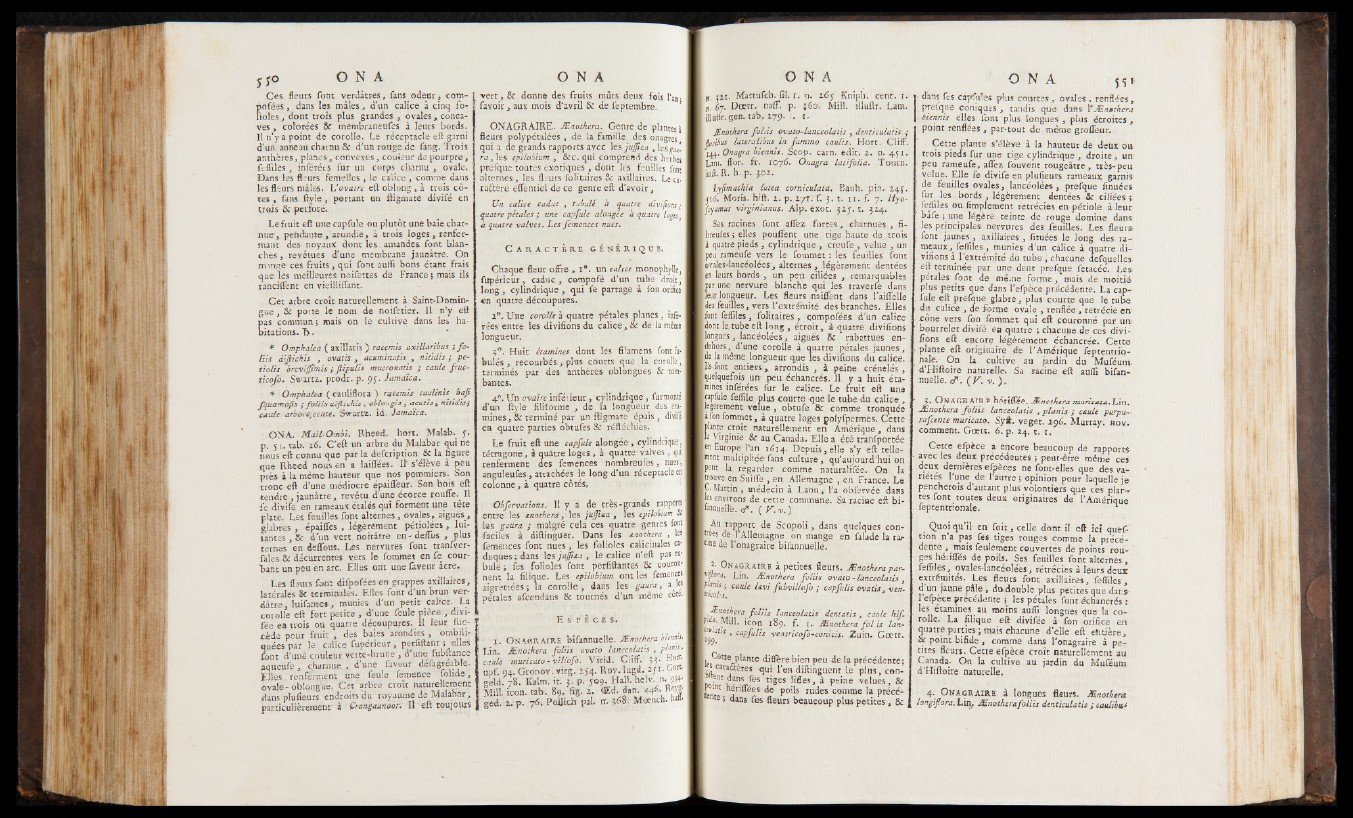 550 O N A
Ces fleurs sont verdâtres, sans odeur, com-
posées, dans les mâles, d'un calice à cinq fo-
lioles, dont trois plus grandes, ovales, conca-
ves, colorées & membraneuses à leurs bords.
Il n'y a point de corolle. Le réceptacle est garni
d'un anneau charnu & d'un rouge de sang. Trois
anthères, planes, convexes, couleur de pourpre,
sessiles, insérées sur un corps charnu, ovale.
Dans les fleurs femelles, le calice, comme dans
les fleurs mâles. L'ovaire est oblong, à trois cô-
tés, sans style, portant un stigmate divisé en
trois & perforé.
Le fruit est une capsule ou plutôt une baie char-
nue, pendante, arondie, à trois loges, renfer-
mant des noyaux dont les amandes sont blan-
ches, revêtues d'une membrane jaunâtre. On
mange ces fruits, qui sont aussi bons étant frais
que les meilleures noisettes de France; mais ils
rancissent en vieillissant.
Cet arbre croît naturellement à Saint-Domin-
gue, & porte le nom de noisetier. Il n'y est
pas commun; mais on le cultive dans les ha-
bitations. ♄.
* Omphalea (axillaris) racemis axillaribus; fo-
liis distichis, ovatis, acuminatis, nitidis; pe-
tiolis brevissimis; stipulis mucronatis; caule fruc-
ticoso. Swartz. prodr. p. 95. Jamaica.
* Omphalea (cauliflora) racemis caulinis basi
squamosis; foliis distichis, oblongis, acutis, nitidis;
caule arborescente. Swartz. id. Jamaica.
ONA. Mail-Ombi. Rheed. hort. Malab. 5.
p. 51. tab. 26. C'est un arbre du Malabar qui ne
nous est connu que par la description & la figure
que Rheed nous en a laissées. Il s'élève à peu
près à la même hauteur que nos pommiers. Son
tronc est d'une médiocre épaisseur. Son bois est
tendre, jaunâtre, revêtu d'une écorce rousse. Il
se divise en rameaux étalés qui forment une tête
plate. Les feuilles sont alternes, ovales, aiguës,
glabres, épaisses, légèrement pétiolées, lui-
santes, & d'un vert noirâtre en-dessus, plus
ternes en dessous. Les nervures sont transver-
sales & décurrentes vers le sommet en se cour-
bant un peu en arc. Elles ont une saveur âcre.
Les fleurs sont disposées en grappes axillaires,
latérales & terminales. Elles sont d'un brun ver-
dâtre, luisantes, munies d'un petit calice. La
corolle est fort petite, d'une seule pièce, divi-
sée en trois ou quatre découpures. Il leur suc-
cède pour fruit, des baies arondies, ombili-
quées par le calice supérieur, persistant; elles
sont d'une couleur verte-brune, d'une substance
aqueuse, charnue, d'une saveur désagréable.
Elles renferment une seule semence solide,
ovale-oblongue. Cet arbre croît naturellement
dans plusieurs endroits du royaume de Malabar,
particulièrement à Crangaunoor. Il est toujours
O N A
vert, & donne des fruits mûrs deux fois l'an;
savoir, aux mois d'avril & de septembre.
ONAGRAIRE. Ænothera. Genre de plantes à
fleurs polypétalées, de la famille des onagres,
qui a de grands rapports avec les jussiea, les gau-
ra, les epilobium, &c. qui comprend des herbes
presque toutes exotiques, dont les feuilles sont
alternes, les fleurs solitaires & axillaires. Le ca-
ractère essentiel de ce genre est d'avoir,
Un calice caduc, tubulé à quatre divisions;
quatre pétales; une capsule alongée à quatre loges,
à quatre valves. Les semences nues.
CARACTÈRE GÉNÉRIQUE.
Chaque fleur offre, 1°. un calice monophylle,
supérieur, caduc, composé d'un tube droit,
long, cylindrique, qui se partage à son orifice
en quatre découpures.
2°. Une corolle à quatre pétales planes, insé-
rées entre les divisions du calice, & de la même
longueur.
3°. Huit étamines dont les filamens sont su-
bulés, recourbés, plus courts que la corolle,
terminés par des anthères oblongues & tom-
bantes.
4°. Un ovaire inférieur, cylindrique, surmonté
d'un style filiforme, de la longueur des éta-
mines, & terminé par un stigmate épais, divisé
en quatre parties obtuses & réfléchies.
Le fruit est une capsule alongée, cylindrique,
tétragone, à quatre loges, à quatre valves, qui
renferment des semences nombreuses, nues,
anguleuses, attachées le long d'un réceptacle en
colonne, à quatre côtés.
Observations. Il y a de très-grands rapports
entre les ænothera, les jussiea, les epilobium &
les gaura; malgré cela ces quatre genres sont
faciles à distinguer. Dans les ænothera, les
semences sont nues, les folioles calicinales ca-
duques; dans les jussiea, le calice n'est pas tu-
bulé; ses folioles sont persistantes & couron-
nent la silique. Les epilobium ont les semences
aigrettées; la corolle, dans les gaura, a les
pétales ascendans & tournés d'un même côté.
ESPÈCES.
1. ONAGRAIRE bisannuelle. Ænothera biennis.
Lin. Ænothera foliis ovato lanceolatis, planis,
caule muricato-villoso. Virid. Cliff. 33. Hort.
upf. 94. Gronov. virg. 254. Roy. lugd. 251. Gort.
geld. 78. Kalm. it. 3. p. 509. Hall. helv. n. 994.
Mill. icon. tab. 89. fig. 2. Œd. dan. 446. Reyg.
ged. 2. p. 76. Pollich pal. n. 368. Mœnch. hass.
O N A
n. 321. Mattusch. sil. 1. n. 265. Kniph. cent. 1.
n. 67. Dœrr. nass. p. 360. Mill. illustr. Lam.
illustr. gen. tab. 279. f. 1.
Ænothera foliis ovato-lanceolatis, denticulatis;
floribus lateralibus in summo caulis. Hort. Cliff.
144. Onagra biennis. Scop. carn. edit. 2. n. 451.
Lam. flor. fr. 1076. Onagra latifolia. Tourn.
inst. R. h. p. 302.
Lysimachia lutea corniculata. Bauh. pin. 245.
516. Moris. hist. 2. p. 271. s. 3. t. 11. f. 7. Hyo-
scyamus virginianus. Alp. exot. 325. t. 324.
Ses racines sont assez fortes, charnues, fi-
breuses; elles poussent une tige haute de trois
à quatre pieds, cylindrique, creuse, velue, un
peu rameuse vers le sommet: les feuilles sont
ovales-lancéolées, alternes, légèrement dentées
en leurs bords, un peu ciliées, remarquables
par une nervure blanche qui les traverse dans
leur longueur. Les fleurs naissent dans l'aisselle
des feuilles, vers l'extrémité des branches. Elles
sont sessiles, solitaires, composées d'un calice
dont le tube est long, étroit, à quatre divisions
longues, lancéolées, aiguës & rabattues en-
dehors, d'une corolle à quatre pétales jaunes,
de la même longueur que les divisions du calice.
Ils sont entiers, arrondis, à peine crénelés,
quelquefois un peu échancrés. Il y a huit éta-
mines insérées sur le calice. Le fruit est une
capsule sessile plus courte que le tube du calice,
légèrement velue, obtuse & comme tronquée
à son sommet, à quatre loges polyspermes. Cette
plante croît naturellement en Amérique, dans
la Virginie & au Canada. Elle a été transportée
en Europe l'an 1614. Depuis, elle s'y est telle-
ment multipliée sans culture, qu'aujourd'hui on
peut la regarder comme naturalisée. On la
trouve en Suisse, en Allemagne, en France. Le
C. Martin, médecin à Laon, l'a observée dans
les environs de cette commune. Sa racine est bi-
sannuelle. ♂. (V. v.)
Au rapport de Scopoli, dans quelques con-
trées de l'Allemagne on mange en salade la ra-
cine de l'onagraire bisannuelle.
2. ONAGRAIRE à petites fleurs. Ænothera par-
viflora. Lin. Ænothera foliis ovato-lanceolatis,
planis; caule lævi subvilloso; capsulis ovatis, ven-
tricosis.
Ænothera foliis lanceolatis dentatis, caule his-
pido. Mill. icon 189. f. 1. Ænothera foliis lan-
ceolatis, capsulis ventricoso-conicis. Zuin. Gœtt.
299.
Cette plante diffère bien peu de la précédente;
les caractères qui l'en distinguent le plus, con-
sistent dans ses tiges lisses, à peine velues, &
point hérissées de poils rudes comme la précé-
dente; dans ses fleurs beaucoup plus petites, &
O N A 551
dans ses capsules plus courtes, ovales, renflées,
presque coniques, tandis que dans l'Ænothera
biennis elles sont plus longues, plus étroites,
point renflées, par-tout de même grosseur.
Cette plante s'élève à la hauteur de deux ou
trois pieds sur une tige cylindrique, droite, un
peu rameuse, assez souvent rougeâtre, très-peu
velue. Elle se divise en plusieurs rameaux garnis
de feuilles ovales, lancéolées, presque sinuées
sur les bords, légèrement dentées & ciliées;
sessiles ou simplement retrécies en pétiole à leur
base; une légère teinte de rouge domine dans
les principales nervures des feuilles. Les fleurs
sont jaunes, axillaires, situées le long des ra-
meaux, sessiles, munies d'un calice à quatre di-
visions à l'extrémité du tube, chacune desquelles
est terminée par une dent presque setacée. Les
pétales sont de même forme, mais de moitié
plus petits que dans l'espèce précédente. La cap-
sule est presque glabre, plus courte que le tube
du calice, de forme ovale, renflée, retrécie en
cône vers son sommet qui est couronné par un
bourrelet divisé en quatre; chacune de ces divi-
sions est encore légèrement échancrée. Cette
plante est originaire de l'Amérique septentrio-
nale. On la cultive au jardin du Muséum
d'Histoire naturelle. Sa racine est aussi bisan-
nuelle. ♂. (V. v.).
3. ONAGRAIRE hérissée. Ænothera muricata. Lin.
Ænothera foliis lanceolatis, planis; caule purpu-
rascente muricato. Syst. veget. 296. Murray. nov.
comment. Gœtt. 6. p. 24. t. 1.
Cette espèce a encore beaucoup de rapports
avec les deux précédentes; peut-être même ces
deux dernières espèces ne sont-elles que des va-
riétés l'une de l'autre; opinion pour laquelle je
pencherois d'autant plus volontiers que ces plan-
tes sont toutes deux originaires de l'Amérique
septentrionale.
Quoi qu'il en soit, celle dont il est ici ques-
tion n'a pas ses tiges rouges comme la précé-
dente, mais seulement couvertes de points rou-
ges hérissés de poils. Ses feuilles sont alternes,
sessiles, ovales-lancéolées, rétrécies à leurs deux
extrémités. Les fleurs sont axillaires, sessiles,
d'un jaune pâle, du double plus petites que dans
l'espèce précédente; les pétales sont échancrés:
les étamines au moins aussi longues que la co-
rolle. La silique est divisée à son orifice en
quatre parties; mais chacune d'elle est entière,
& point bifide, comme dans l'onagraire à pe-
tites fleurs. Cette espèce croît naturellement au
Canada. On la cultive au jardin du Muséum
d'Histoire naturelle.
4. ONAGRAIRE à longues fleurs. Ænothera
longiflora. Lin. Ænothera foliis denticulatis; caulibus